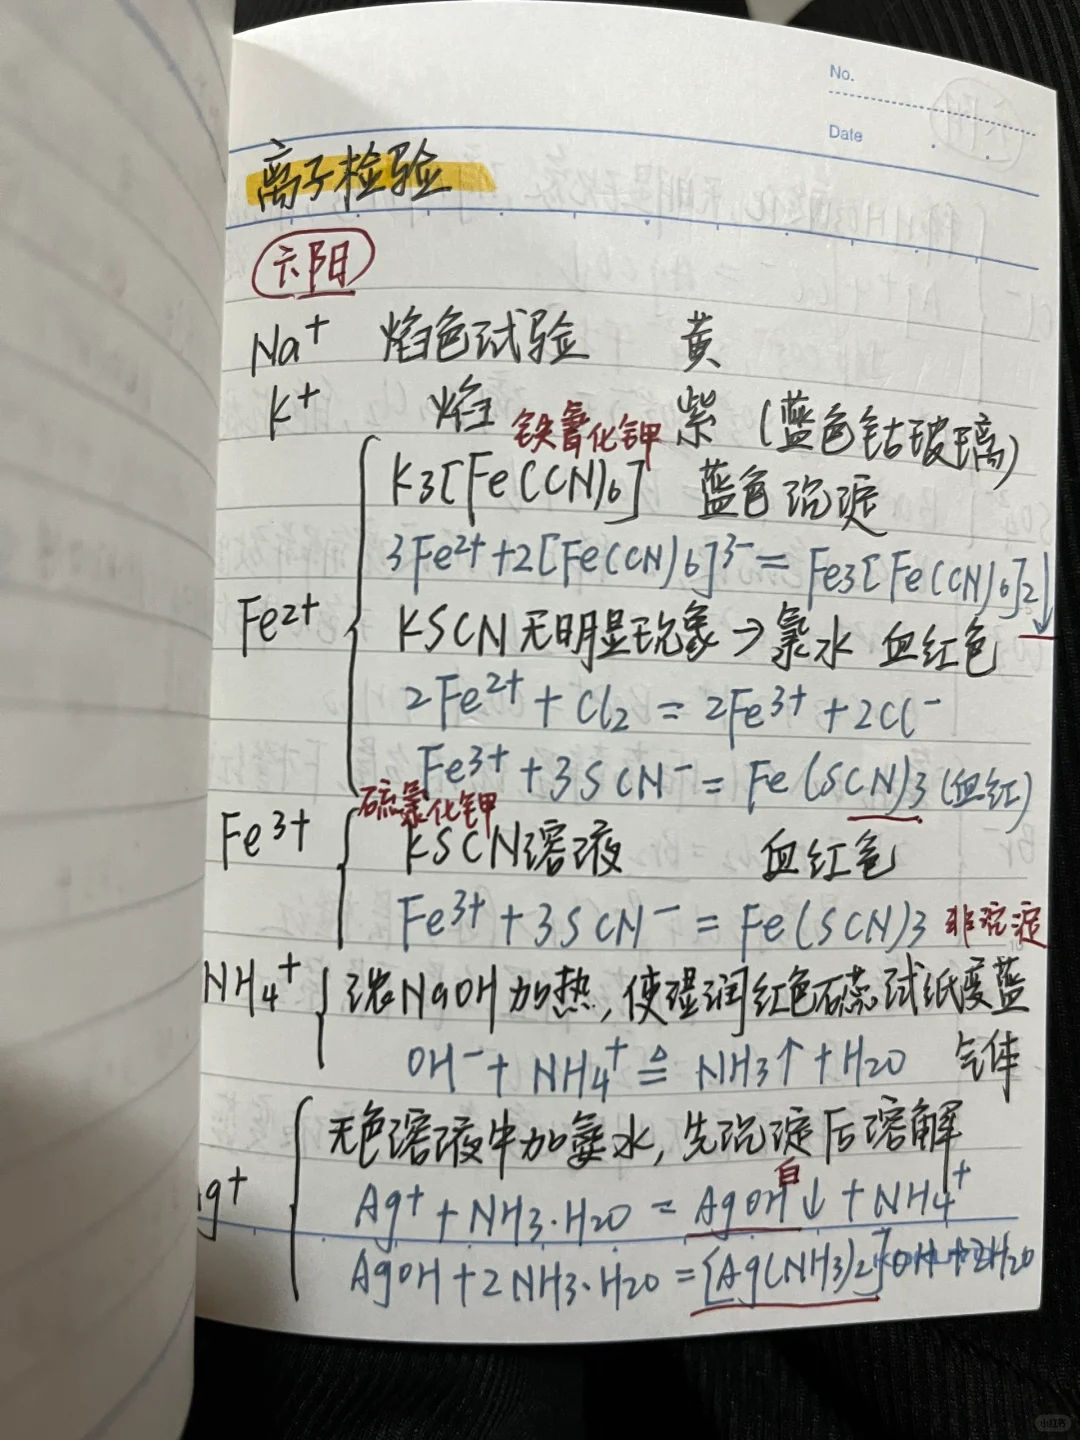 No.
Date
离子检验
六阳
Na⁺ 焰色试验 黄
K⁺ 焰 紫 (蓝色钴玻璃)
铁氰化钾
K3[Fe(CN)6] 蓝色沉淀
3Fe²⁺+2[Fe(CN)6]³⁻ = Fe3[Fe(CN)6]2↓
Fe²⁺ KSCN 无明显现象→氯水 血红色
2Fe²⁺ + Cl2 = 2Fe³⁺ + 2Cl⁻
Fe³⁺ + 3SCN⁻ = Fe(SCN)3 (血红)
硫氰化钾
Fe³⁺ KSCN溶液 血红色
Fe³⁺ + 3SCN⁻ = Fe(SCN)3 非沉淀
NH4⁺ 浓NaOH加热,使湿润红色石蕊试纸变蓝
OH⁻ + NH4⁺ ≜ NH3↑ + H2O 气体
无色溶液中加氨水,先沉淀后溶解
白
Ag⁺ Ag⁺ + NH3·H2O = AgOH↓ + NH4⁺
AgOH + 2NH3·H2O = [Ag(NH3)2] OH + 2H2O
小红书